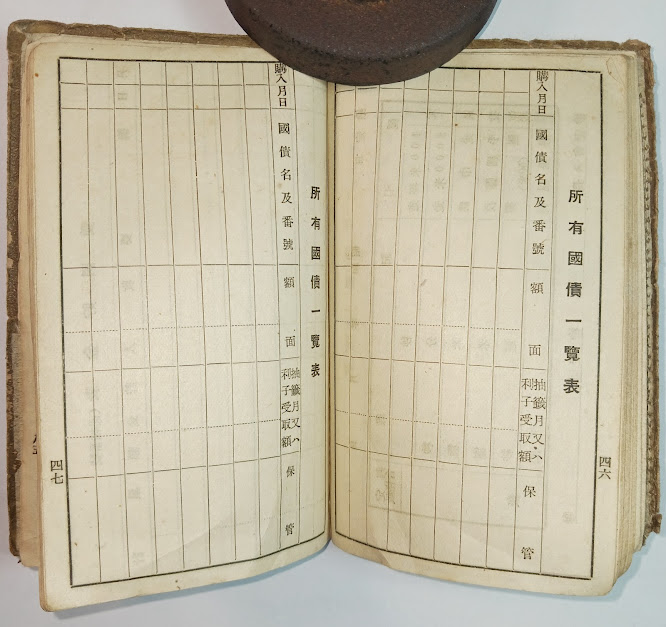 所有國債一覽表
購入月日
國債名及番號
額面
抽籤月又ハ
利子受取額
保管
四六
所有國債一覽表
購入月日
國債名及番號
額面
抽籤月又ハ
利子受取額
保管
四七